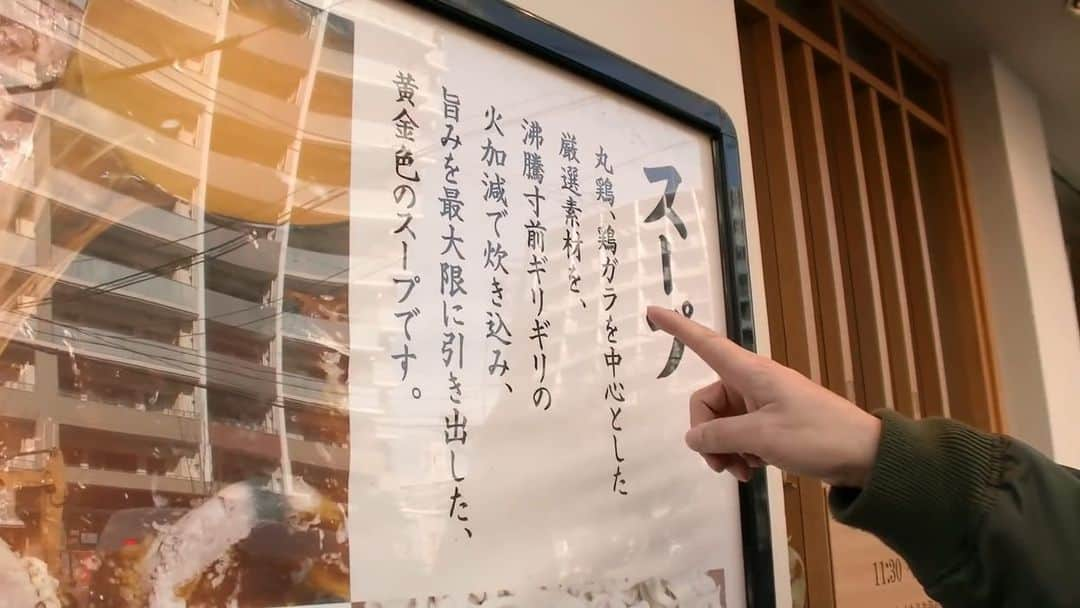 スープ
丸鶏、鶏ガラを中心とした
厳選素材を、
沸騰寸前ギリギリの
火加減で炊き込み、
旨みを最大限に引き出した、
黄金色のスープです。
11:30